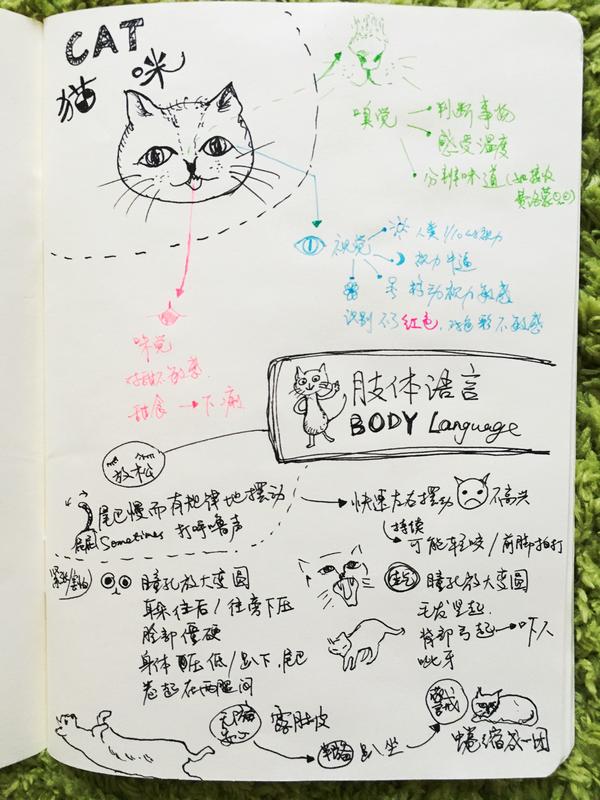 CAT
猫咪
嗅觉
判断事物
感受温度
分辨味道
视觉
人类1/10的视力
视力牛逼
移动视力敏感
识别不了红色,对色彩不敏感
味觉
对甜不敏感.
甜食→下痢
肢体语言
BODY Language
放松
尾巴慢而有规律地摆动
Sometimes 打呼噜声
快速左右摆动 不高兴
持续
可能轻咬/前脚拍打
瞳孔放大变圆
耳朵往后/往旁下压
脸部僵硬
身体压低/趴下,尾巴
卷起在两腿间
瞳孔放大变圆
毛发竖起.
背部弓起→吓人
呲牙
露肚皮
趴坐
警戒
蜷缩成一团